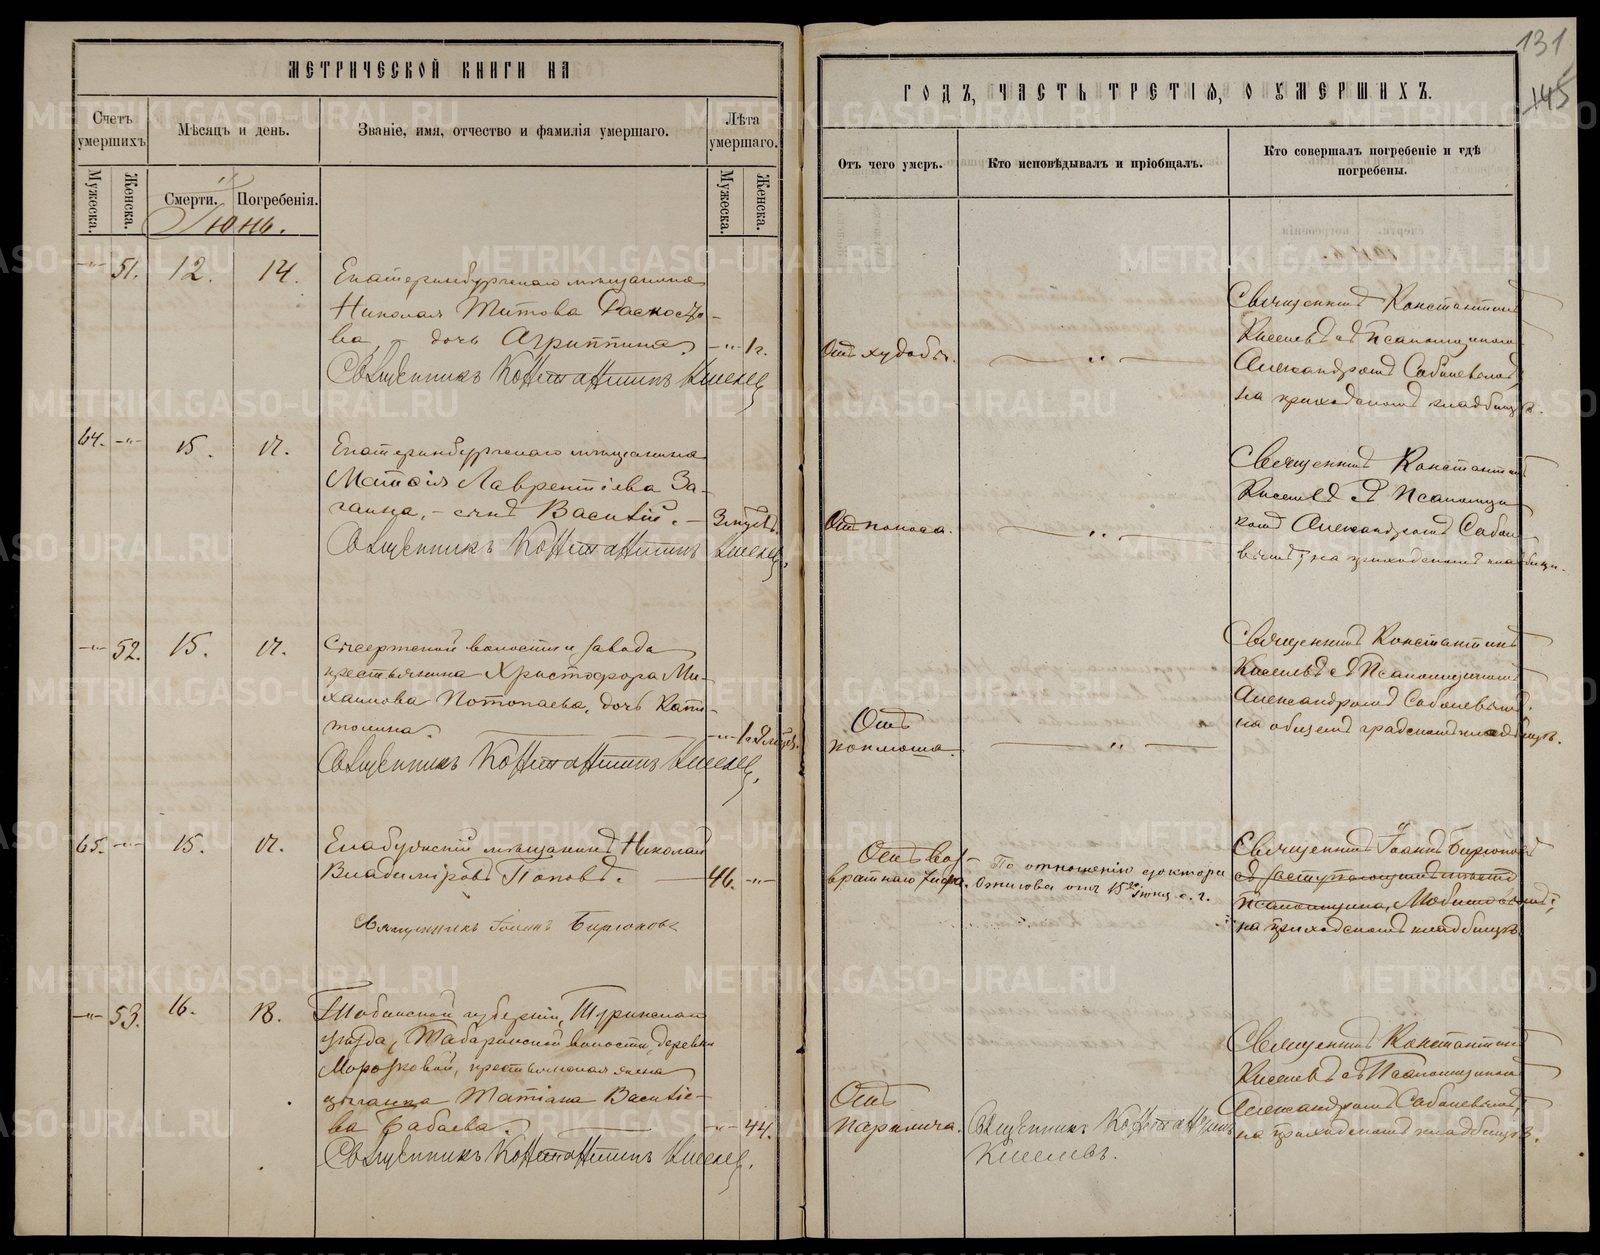 МЕТРИЧЕСКОЙ КНИГИ НА
Счетъ умершихъ.
Мѣсяцъ и день.
Званіе, имя, отчество и фамилія умершаго.
Лѣта умершаго.
Мужеска.
Женска.
Смерти.
Погребенія.
Мужеска.
Женска.
Іюнь.
-"- 51. 12. 14.
Екатеринбургскаго мѣщанина
Николая Титова
ва, - дочь Агриппина. -"- 1 г.
Священникъ Константинъ Киселев
64. -"- 15. 17.
Екатеринбургскаго мѣщанина
Матѳія Лаврентіева За-
гаина, - сынъ Василій. - 3 мѣсяц.
Священникъ Константинъ Киселев.
-"- 52. 15. 17.
Сысертской волости и завода
крестьянина Христофора Ми-
хаилова Потопаева, дочь Капи-
толина. -"-
Священникъ Константинъ Киселев.
65. -"- 15. 17.
Елабужскій мѣщанинъ Николай
Владиміровъ Поповъ. 46. -"-
Священникъ Іоаннъ Бирюковъ
-"- 53. 16. 18.
Тобольской губерніи, Туринскаго
уѣзда, Табаринской волости, деревни
Морозковой, крестьянская жена
цыганка Татіана Василіе-
ва Бабаева. -"- 44.
Священникъ Константинъ Киселев.
131
145
ГОДЪ, ЧАСТЬ ТРЕТІЯ, О УМЕРШИХЪ.
Отъ чего умеръ.
Кто исповѣдывалъ и пріобщалъ.
Кто совершалъ погребеніе и гдѣ погребены.
Отъ худобы.
-"-
Священникъ Константинъ
Киселевъ съ Псаломщикомъ
Александромъ
на приходскомъ кладбищѣ.
Отъ поноса.
-"-
Священникъ Константинъ
Киселевъ съ Псаломщи
комъ Александромъ
на приходскомъ кладбищѣ.
Отъ
коклюша.
-"-
Священникъ Константинъ
Киселевъ съ Псаломщикомъ
Александромъ
на общемъ градскомъ кладбищѣ.
Отъ воз-
вратнаго тифа.
По отношенію доктора
отъ 15го Іюня с. г.
Священникъ Іоаннъ Бирюковъ
съ
Псаломщика,
на приходскомъ кладбищѣ.
Отъ
паралича.
Священникъ Константинъ
Киселевъ.
Священникъ Константинъ
Киселевъ съ Псаломщикомъ
Александромъ
на приходскомъ кладбищѣ.
METRIKI.GASO-URAL.RU